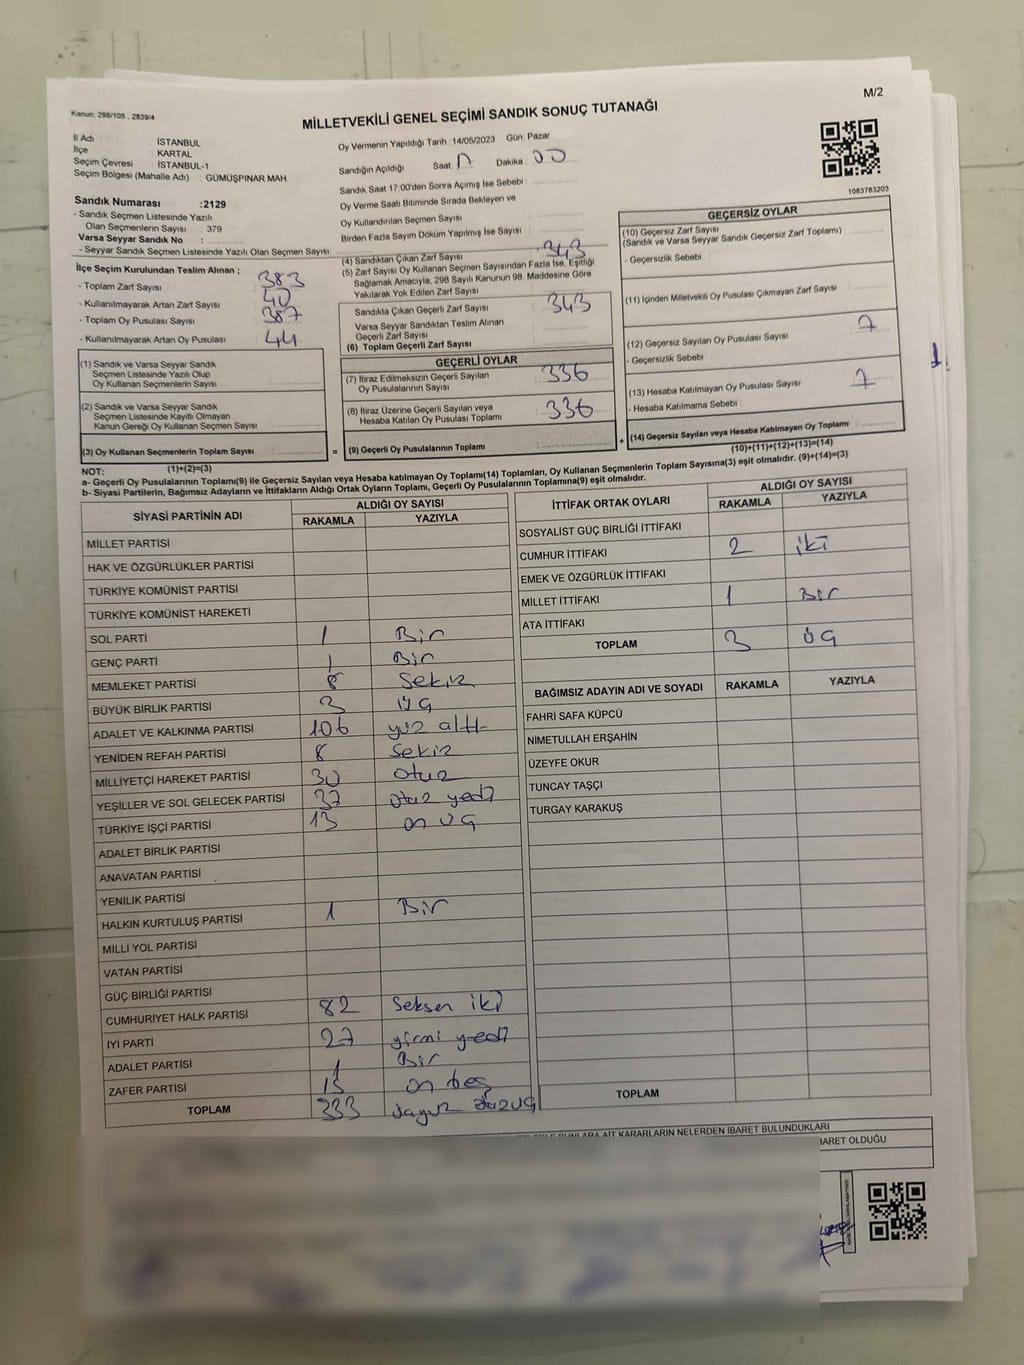 Kanun: 298/105 , 2839/4
M/2
MİLLETVEKİLİ GENEL SEÇİMİ SANDIK SONUÇ TUTANAĞI
İl Adı : İSTANBUL
İlçe : KARTAL
Seçim Çevresi : İSTANBUL-1
Seçim Bölgesi (Mahalle Adı) : GÜMÜŞPINAR MAH.
Sandık Numarası :2129
- Sandık Seçmen Listesinde Yazılı
Olan Seçmenlerin Sayısı : 379
Varsa Seyyar Sandık No :
- Seyyar Sandık Seçmen Listesinde Yazılı Olan Seçmen Sayısı:
İlçe Seçim Kurulundan Teslim Alınan ;
- Toplam Zarf Sayısı : 383
- Kullanılmayarak Artan Zarf Sayısı : 40
- Toplam Oy Pusulası Sayısı : 387
- Kullanılmayarak Artan Oy Pusulası : 44
(1) Sandık ve Varsa Seyyar Sandık
Seçmen Listesinde Yazılı Olup
Oy Kullanan Seçmenlerin Sayısı :
(2) Sandık ve Varsa Seyyar Sandık
Seçmen Listesinde Kayıtlı Olmayan
Kanun Gereği Oy Kullanan Seçmen Sayısı :
(3) Oy Kullanan Seçmenlerin Toplam Sayısı :
Oy Vermenin Yapıldığı Tarih :14/05/2023 Gün: Pazar
Sandığın Açıldığı Saat: 17 Dakika : 00
Sandık Saat 17:00'den Sonra Açımış İse Sebebi :
Oy Verme Saati Bitiminde Sırada Bekleyen ve
Oy Kullandırılan Seçmen Sayısı :
Birden Fazla Sayım Döküm Yapılmış İse Sayısı :
(4) Sandıktan Çıkan Zarf Sayısı : 343
(5) Zarf Sayısı Oy Kullanan Seçmen Sayısından Fazla İse, Eşitliği
Sağlamak Amacıyla, 298 Sayılı Kanunun 98. Maddesine Göre
Yakılarak Yok Edilen Zarf Sayısı :
Sandıkta Çıkan Geçerli Zarf Sayısı : 343
Varsa Seyyar Sandıktan Teslim Alınan
Geçerli Zarf Sayısı :
(6) Toplam Geçerli Zarf Sayısı :
GEÇERLİ OYLAR
(7) İtiraz Edilmeksizin Geçerli Sayılan
Oy Pusulalarının Sayısı : 336
(8) İtiraz Üzerine Geçerli Sayılan veya
Hesaba Katılan Oy Pusulası Toplamı : 336
= (9) Geçerli Oy Pusulalarının Toplamı :
1083783203
GEÇERSİZ OYLAR
(10) Geçersiz Zarf Sayısı
(Sandık ve Varsa Seyyar Sandık Geçersiz Zarf Toplamı) :
- Geçersizlik Sebebi :
(11) İçinden Milletvekili Oy Pusulası Çıkmayan Zarf Sayısı :
(12) Geçersiz Sayılan Oy Pusulası Sayısı : 7
- Geçersizlik Sebebi :
(13) Hesaba Katılmayan Oy Pusulası Sayısı : 7
- Hesaba Katılmama Sebebi :
+ (14) Geçersiz Sayılan veya Hesaba Katılmayan Oy Toplamı :
NOT: (1)+(2)=(3) (10)+(11)+(12)+(13)=(14)
a- Geçerli Oy Pusulalarının Toplamı(9) ile Geçersiz Sayılan veya Hesaba katılmayan Oy Toplamı(14) Toplamları, Oy Kullanan Seçmenlerin Toplam Sayısına(3) eşit olmalıdır. (9)+(14)=(3)
b- Siyasi Partilerin, Bağımsız Adayların ve İttifakların Aldığı Ortak Oyların Toplamı, Geçerli Oy Pusulalarının Toplamına(9) eşit olmalıdır.
SİYASİ PARTİNİN ADI ALDIĞI OY SAYISI
RAKAMLA YAZIYLA
MİLLET PARTİSİ
HAK VE ÖZGÜRLÜKLER PARTİSİ
TÜRKİYE KOMÜNİST PARTİSİ
TÜRKİYE KOMÜNİST HAREKETİ
SOL PARTİ 1 Bir
GENÇ PARTİ 1 Bir
MEMLEKET PARTİSİ 8 Sekiz
BÜYÜK BİRLİK PARTİSİ 3 üç
ADALET VE KALKINMA PARTİSİ 106 yüz altı
YENİDEN REFAH PARTİSİ 8 Sekiz
MİLLİYETÇİ HAREKET PARTİSİ 30 otuz
YEŞİLLER VE SOL GELECEK PARTİSİ 37 otuz yedi
TÜRKİYE İŞÇİ PARTİSİ 13 on üç
ADALET BİRLİK PARTİSİ
ANAVATAN PARTİSİ
YENİLİK PARTİSİ
HALKIN KURTULUŞ PARTİSİ 1 Bir
MİLLİ YOL PARTİSİ
VATAN PARTİSİ
GÜÇ BİRLİĞİ PARTİSİ
CUMHURİYET HALK PARTİSİ 82 Seksen iki
İYİ PARTİ 27 yirmi yedi
ADALET PARTİSİ 1 Bir
ZAFER PARTİSİ 15 on beş
TOPLAM 333
İTTİFAK ORTAK OYLARI ALDIĞI OY SAYISI
RAKAMLA YAZIYLA
SOSYALİST GÜÇ BİRLİĞİ İTTİFAKI
CUMHUR İTTİFAKI 2 iki
EMEK VE ÖZGÜRLÜK İTTİFAKI
MİLLET İTTİFAKI 1 Bir
ATA İTTİFAKI
TOPLAM 3 üç
BAĞIMSIZ ADAYIN ADI VE SOYADI RAKAMLA YAZIYLA
FAHRİ SAFA KÜPCÜ
NİMETULLAH ERŞAHİN
ÜZEYFE OKUR
TUNCAY TAŞÇI
TURGAY KARAKUŞ
TOPLAM
AİT KARARLARIN NELERDEN İBARET BULUNDUKLARI
İBARET OLDUĞU